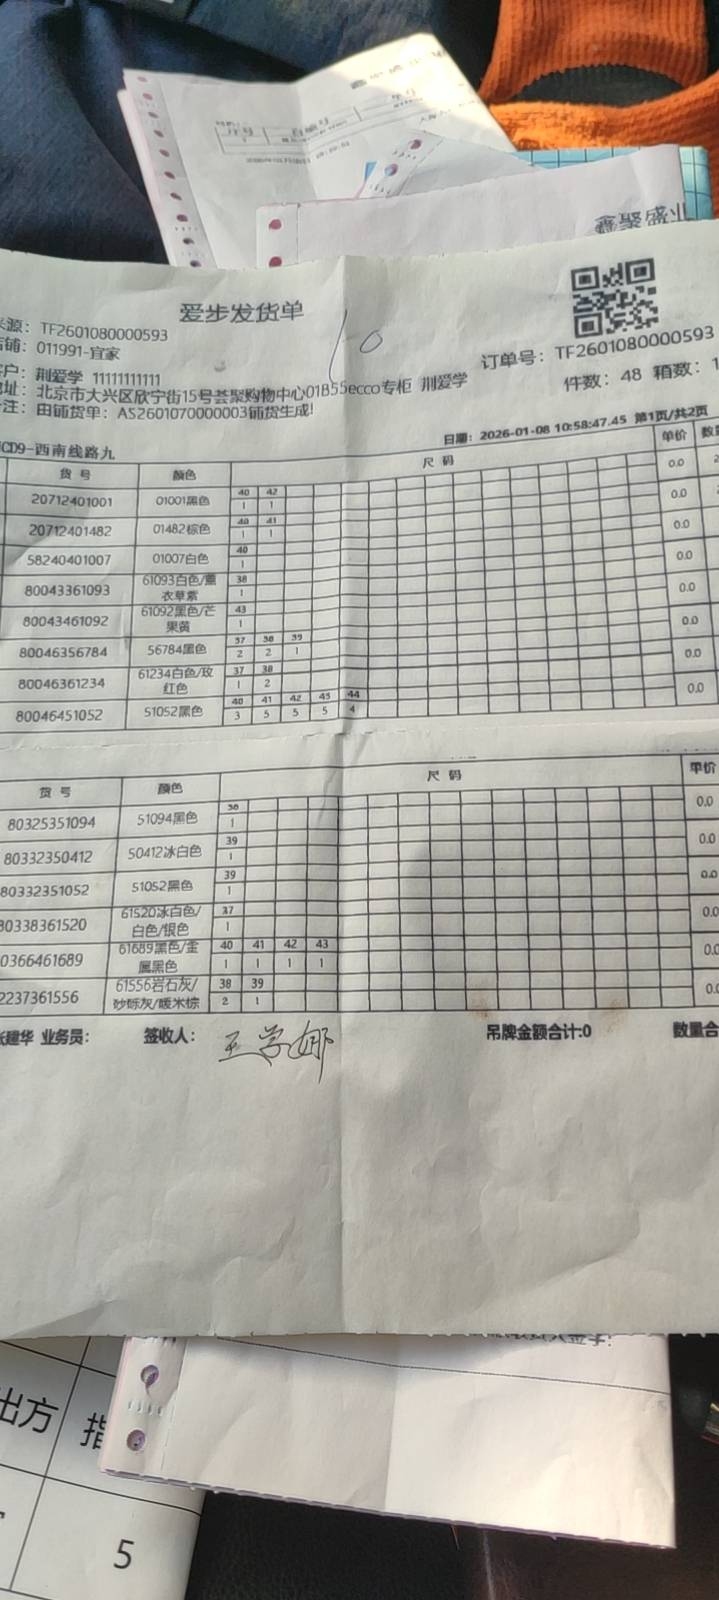 序号
鑫聚盛业
爱步发货单
10
来源: TF2601080000593
店铺: 011991-宜家
订单号: TF2601080000593
客户: 荆爱学 11111111111
件数: 48 箱数: 1
地址: 北京市大兴区欣宁街15号荟聚购物中心01B55ecco专柜 荆爱学
备注: 由铺货单: AS2601070000003铺货生成!
日期: 2026-01-08 10:58:47.45 第1页/共2页
CD9-西南线路九
货号 颜色 尺码 单价 数量
40 42
20712401001 01001黑色 1 1 0.0
40 41
20712401482 01482棕色 1 1 0.0
40
58240401007 01007白色 1 0.0
38
80043361093 61093白色/薰衣草紫 1 0.0
43
80043461092 61092黑色/芒果黄 1 0.0
37 38 39
80046356784 56784黑色 2 2 1 0.0
37 38
80046361234 61234白色/玫红色 1 2 0.0
40 41 42 43 44
80046451052 51052黑色 3 5 5 5 4 0.0
货号 颜色 尺码 单价
38
80325351094 51094黑色 1 0.0
39
80332350412 50412冰白色 1 0.0
39
80332351052 51052黑色 1 0.0
37
80338361520 61520冰白色/白色/银色 1 0.0
40 41 42 43
0366461689 61689黑色/金属黑色 1 1 1 1 0.0
38 39
2237361556 61556岩石灰/砂砾灰/暖米棕 2 1 0.0
张建华 业务员: 签收人: 王学娜 吊牌金额合计:0 数量合
出方 指
5